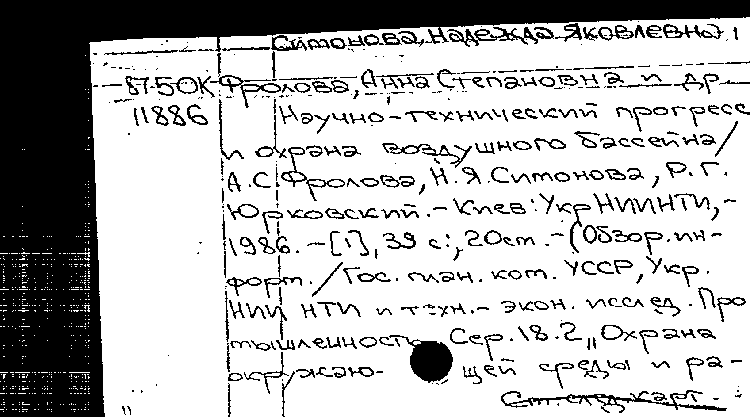 Симонова, Надежда Яковлевна,
87-5ОК Фролова, Анна Степановна и др
11886 Научно-технический прогресс
и охрана воздушного бассейна/
А.С.Фролова, Н.Я.Симонова, Р.Г.
Юрковский.-Киев: УкрНИИНТИ,-
1986.-[1], 39 с.; 20ст.-(Обзор.ин-
форт./Гос. план. ком. УССР, Укр.
НИИ НТИ и техн.-экон. исслед. Про
мышленность Сер.18.2„Охрана
окружаю- щей среды и ра-
См. след. карт.